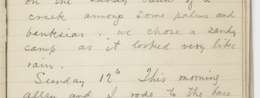 on the sandy bank of a
creek among some palms and
banksias .. we chose a sandy
camp as it looked very like
rain.
Sunday 12th This morning
allan and I rode to the